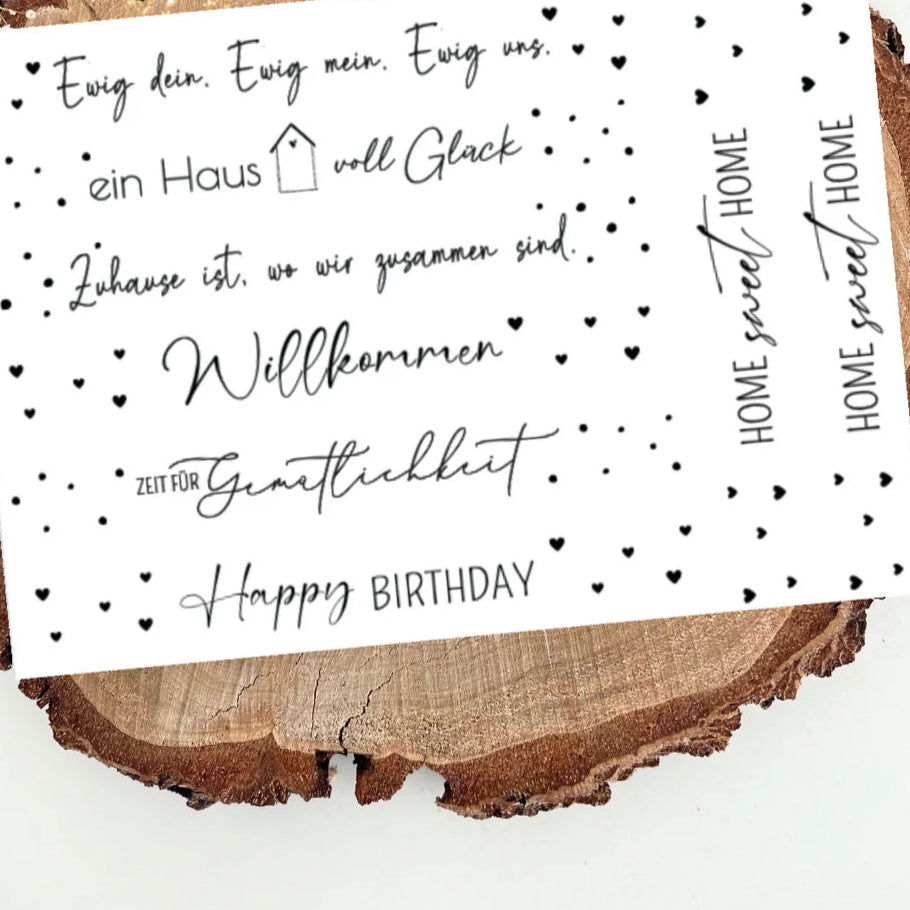 Ewig dein. Ewig mein. Ewig uns.
ein Haus voll Glück
Zuhause ist, wo wir zusammen sind.
Willkommen
ZEIT FÜR Gemütlichkeit
Happy BIRTHDAY
HOME sweet HOME
HOME sweet HOME